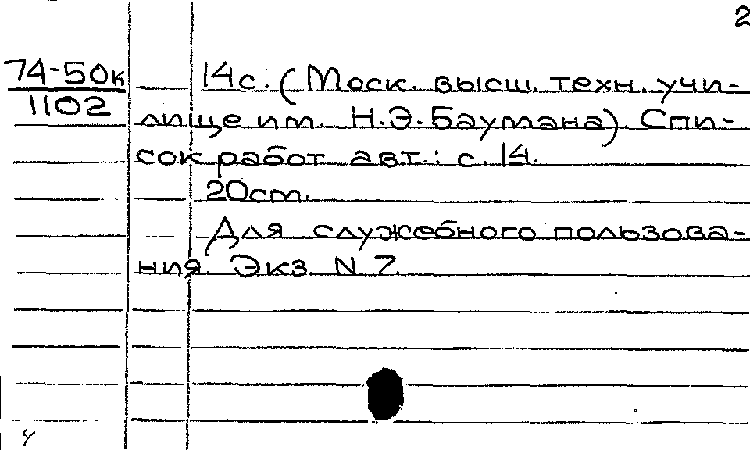 2
74-50к 14с. (Моск. высш. техн. учи-
1102 лище им. Н.Э.Баумана). Спи-
сок работ авт.: с. 14.
20см.
Для служебного пользова-
ния. Экз. N 7.